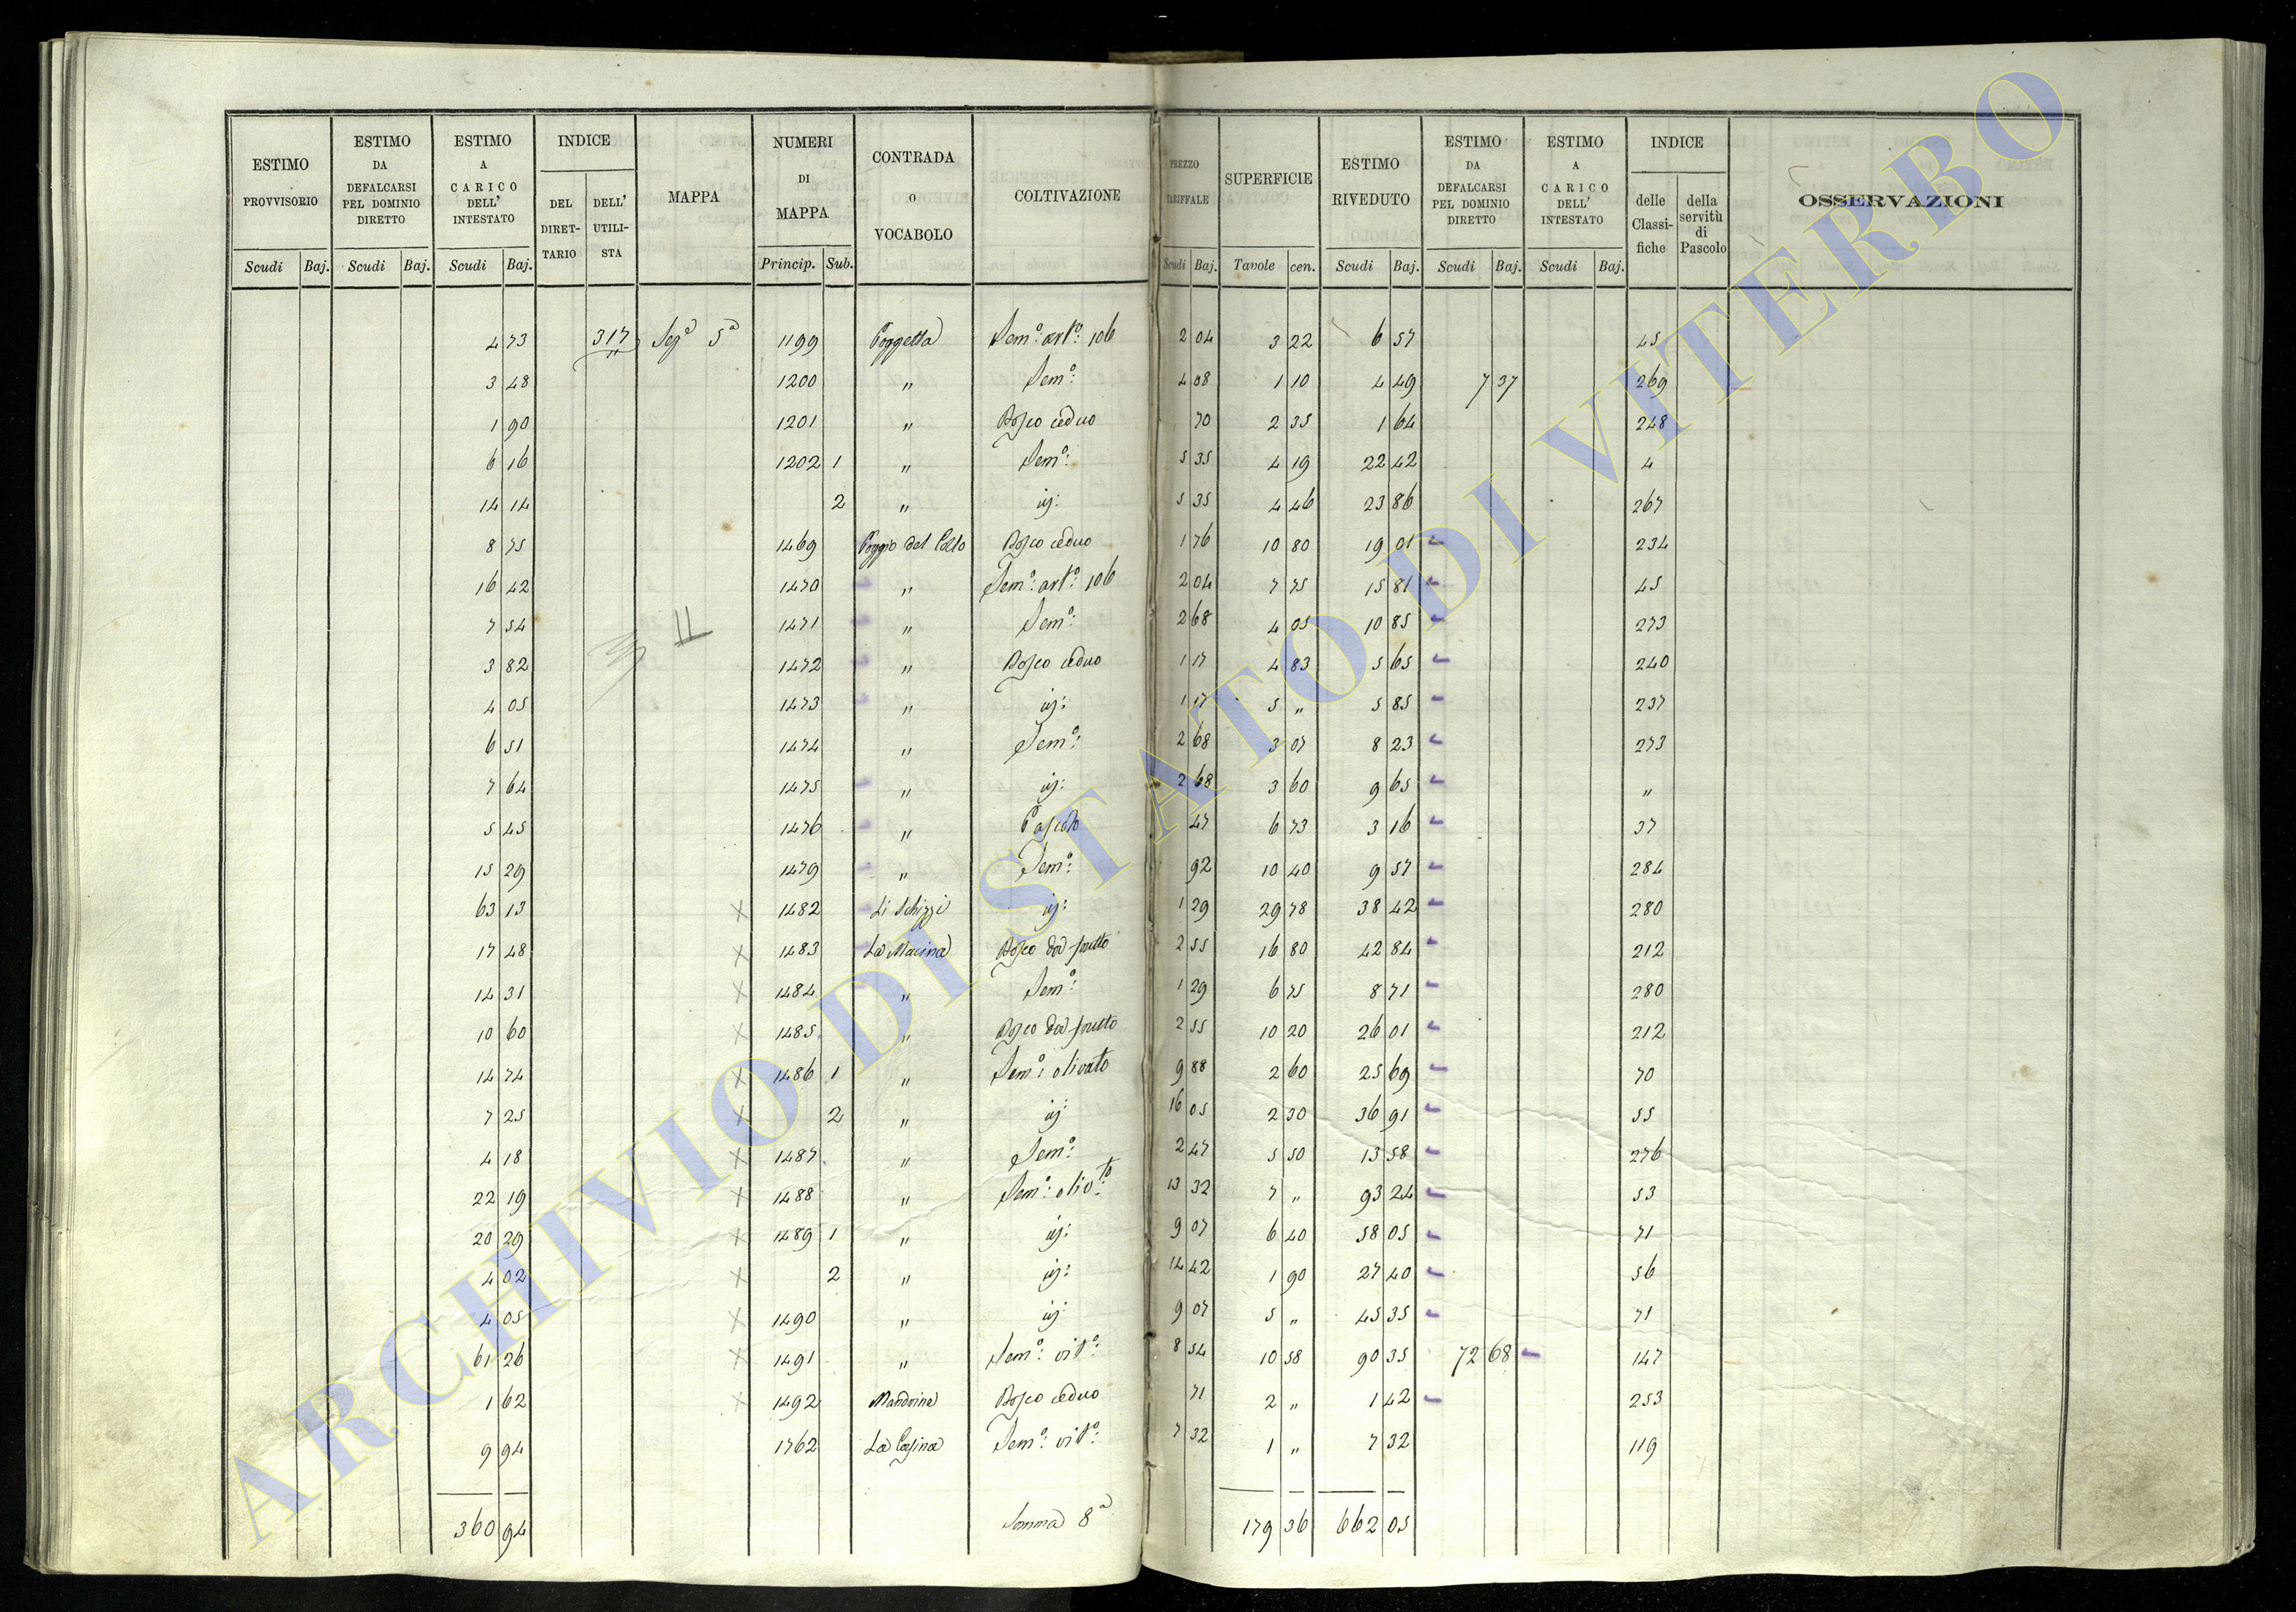 ESTIMO PROVVISORIO | ESTIMO DA DEFALCARSI PEL DOMINIO DIRETTO | ESTIMO A CARICO DELL' INTESTATO | INDICE | MAPPA | NUMERI DI MAPPA | CONTRADA O VOCABOLO | COLTIVAZIONE | PREZZO TARIFFALE | SUPERFICIE | ESTIMO RIVEDUTO | ESTIMO DA DEFALCARSI PEL DOMINIO DIRETTO | ESTIMO A CARICO DELL' INTESTATO | INDICE | OSSERVAZIONI
DEL DIRETTARIO | DELL' UTILISTA | delle Classifiche | della servitù di Pascolo
Scudi | Baj. | Scudi | Baj. | Scudi | Baj. | Princip. | Sub. | Scudi | Baj. | Tavole | cen. | Scudi | Baj. | Scudi | Baj. | Scudi | Baj.
4 73 | 317 | Sezª 5ª | 1199 | Poggetta | Semº: artº: 106 | 2 04 | 3 22 | 6 57 | 45
3 48 | 1200 | " | Semº: | 4 08 | 1 10 | 4 49 | 7 37 | 269
1 90 | 1201 | " | Bosco ceduo | 70 | 2 35 | 1 64 | 248
6 16 | 1202 | 1 | " | Semº: | 5 35 | 4 19 | 22 42 | 4
14 14 | 2 | " | | 5 35 | 4 46 | 23 86 | 267
8 75 | 1469 | Poggio del Collo | Bosco ceduo | 1 76 | 10 80 | 19 01 | 234
16 42 | 1470 | " | Semº: artº: 106 | 2 04 | 7 75 | 15 81 | 45
7 54 | 1471 | " | Semº: | 2 68 | 4 05 | 10 85 | 273
3 82 | 1472 | " | Bosco ceduo | 1 17 | 4 83 | 5 65 | 240
4 05 | 1473 | " | | 1 17 | 5 " | 5 85 | 237
6 51 | 1474 | " | Semº: | 2 68 | 3 07 | 8 23 | 273
7 64 | 1475 | " | | 2 68 | 3 60 | 9 65 | "
5 45 | 1476 | " | Pascolo | 47 | 6 73 | 3 16 | 37
15 29 | 1479 | " | Semº: | 92 | 10 40 | 9 57 | 284
63 13 | X | 1482 | Li Schizzi | | 1 29 | 29 78 | 38 42 | 280
17 48 | X | 1483 | La Macina | Bosco da frutto | 2 55 | 16 80 | 42 84 | 212
14 31 | X | 1484 | " | Semº: | 1 29 | 6 75 | 8 71 | 280
10 60 | X | 1485 | " | Bosco da frutto | 2 55 | 10 20 | 26 01 | 212
14 74 | X | 1486 | 1 | " | Semº: olivato | 9 88 | 2 60 | 25 69 | 70
7 25 | X | 2 | " | | 16 05 | 2 30 | 36 91 | 55
4 18 | X | 1487 | " | Semº: | 2 47 | 5 50 | 13 58 | 276
22 19 | X | 1488 | " | Semº: olivto | 13 32 | 7 " | 93 24 | 53
20 29 | X | 1489 | 1 | " | | 9 07 | 6 40 | 58 05 | 71
4 02 | X | 2 | " | | 14 42 | 1 90 | 27 40 | 56
4 05 | X | 1490 | " | | 9 07 | 5 " | 45 35 | 71
61 26 | X | 1491 | " | Semº: vitº: | 8 54 | 10 58 | 90 35 | 72 68 | 147
1 62 | X | 1492 | Mandrina | Bosco ceduo | 71 | 2 " | 1 42 | 253
9 94 | 1762 | La Casina | Semº: vitº: | 7 32 | 1 " | 7 32 | 119
360 94 | Somma 8ª | 179 36 | 662 05
ARCHIVIO DI STATO DI VITERBO